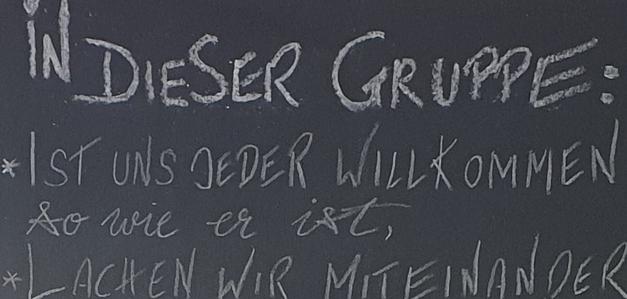 IN DIESER GRUPPE:
* IST UNS JEDER WILLKOMMEN
so wie er ist,
* LACHEN WIR MITEINANDER